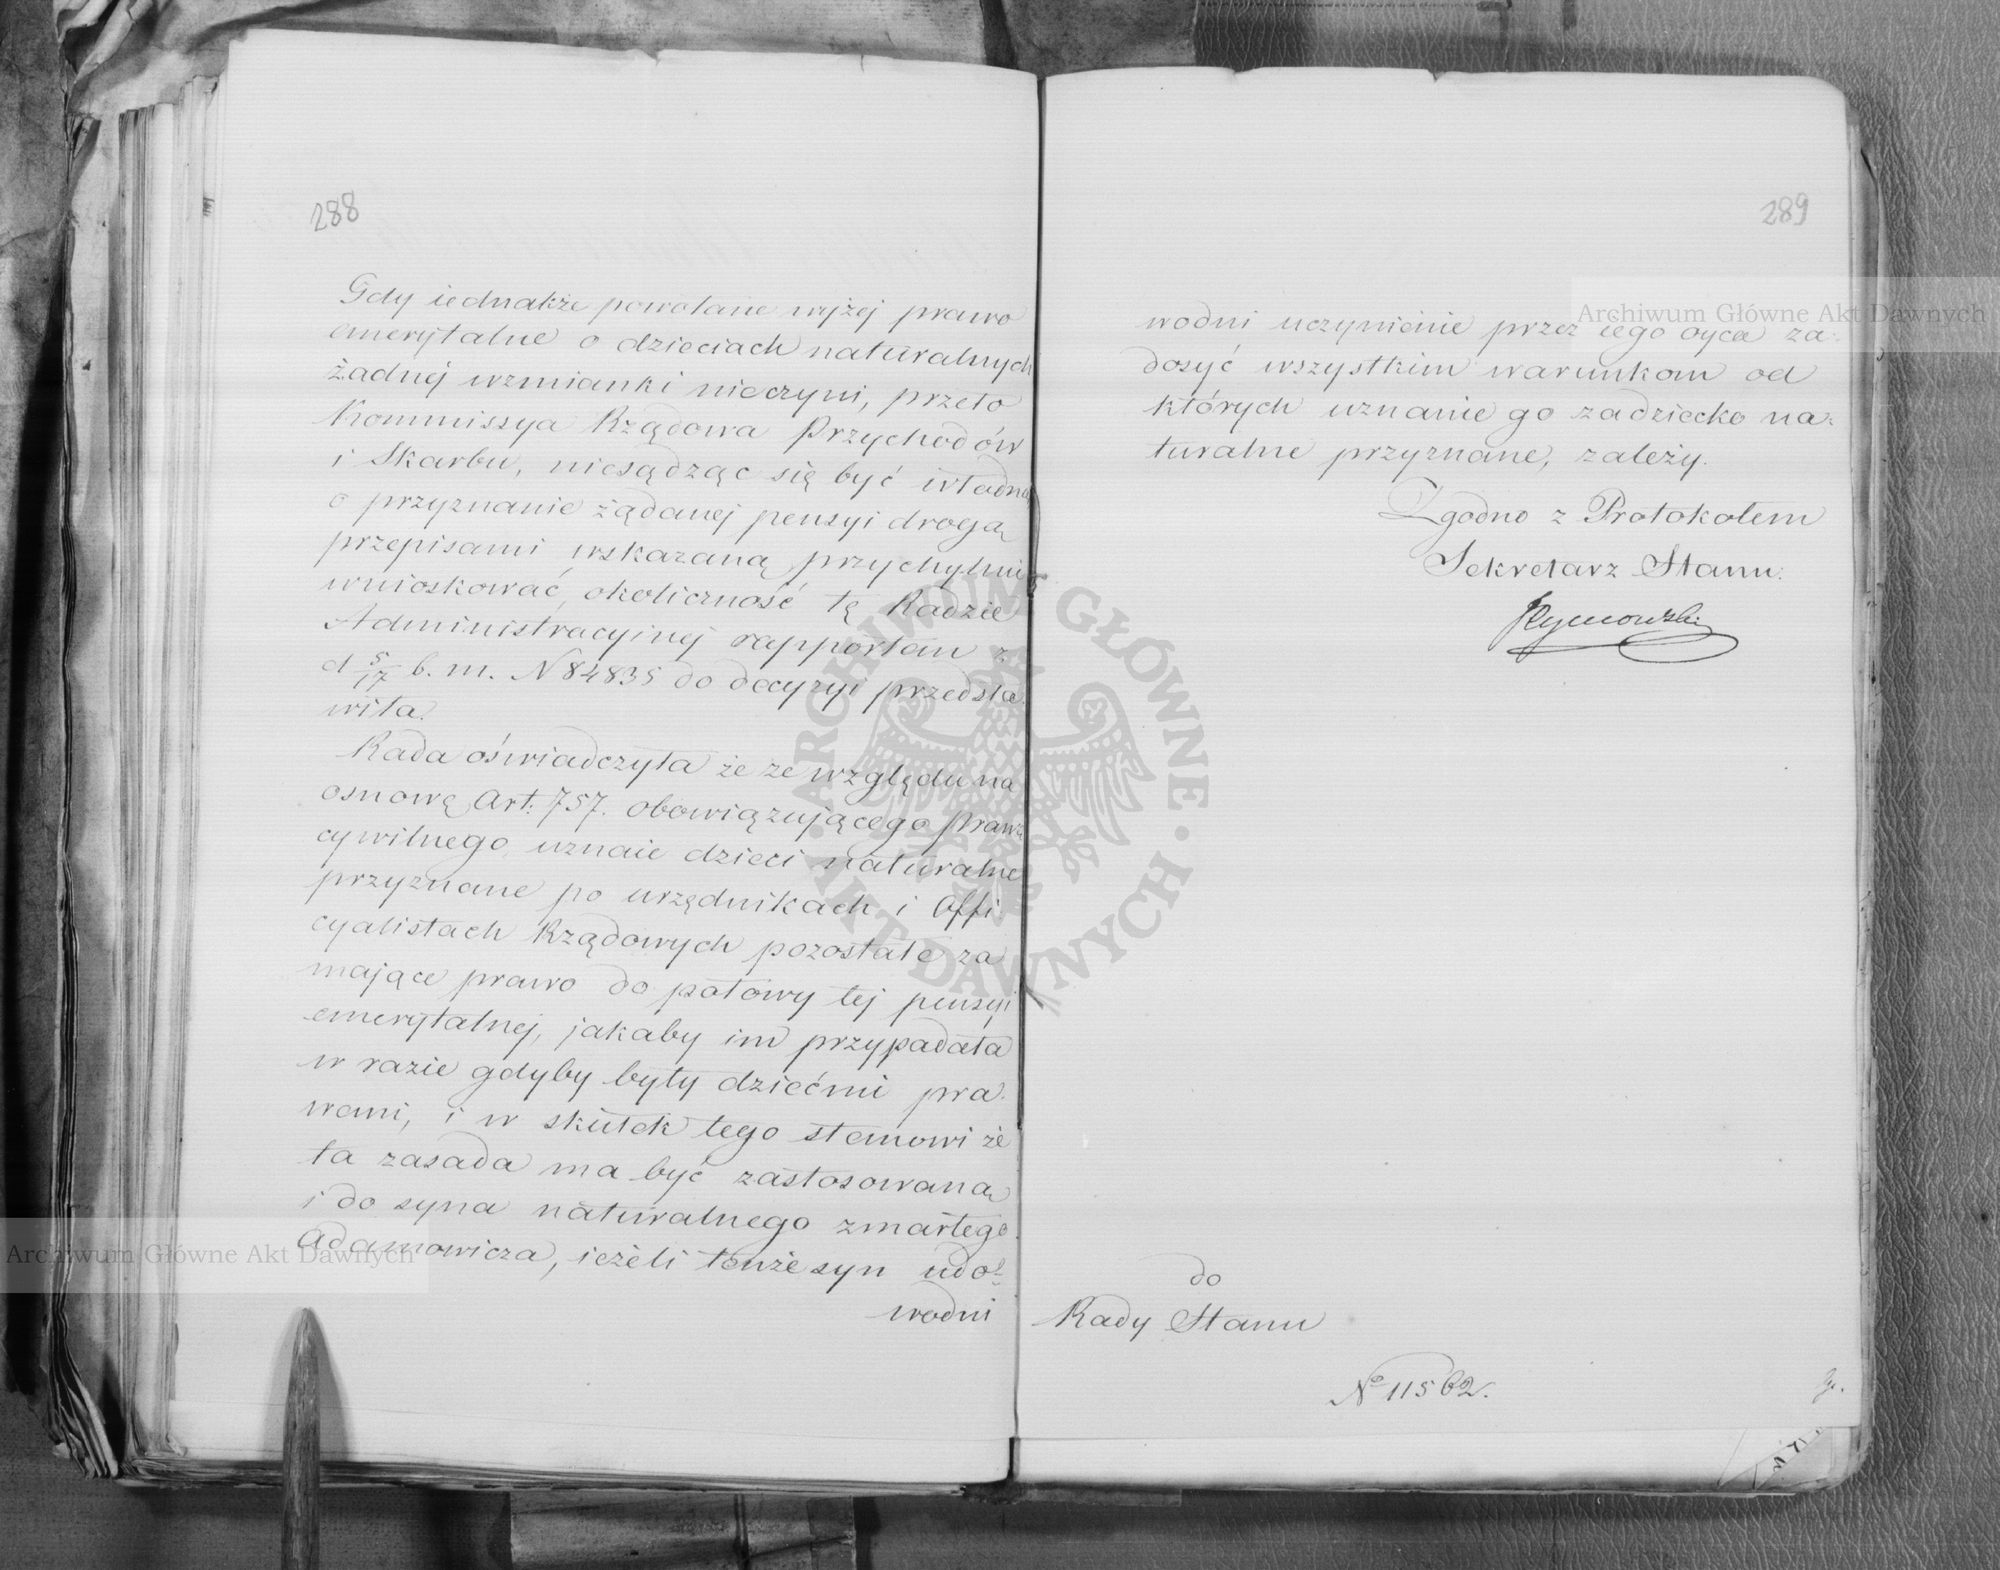 288
Gdy iednakże powołane wyżej prawo
emerytalne o dzieciach naturalnych
żadnej wzmianki nieczyni, przeto
Kommissya Rządowa Przychodów
i Skarbu, niesądząc się być władną
o przyznanie żądanej pensyi drogą
przepisami wskazaną przychylnie
wnioskować, okoliczność tę Radzie
Administracyjnej rapportem z
d 5/17 b. m. N 84835 do decyzyi przedsta
wiła.
Rada oświadczyła że ze względu na
osnowę Art: 757. obowiązującego Prawa
cywilnego uznaie dzieci naturalne
przyznane po urzędnikach i Offi
cyalistach Rządowych pozostałe za
mające prawo do połowy tej pensyi
emerytalnej, jakaby im przypadała
w razie gdyby były dziećmi pra
wemi, i w skutek tego stanowi że
ta zasada ma być zastosowaną
i do syna naturalnego zmarłego
Adamowicza, ieżeli tenże syn udo-
wodni
289
wodni uczynienie przez iego oyca za-
dosyć wszystkim warunkom od
których uznanie go za dziecko na-
turalne przyznane, zależy.
Zgodno z Protokołem
Sekretarz Stanu.
Tymowski
do
Rady Stanu
No 11562.
Archiwum Główne Akt Dawnych
Archiwum Główne Akt Dawnych
ARCHIWUM GŁÓWNE · AKT DAWNYCH ·